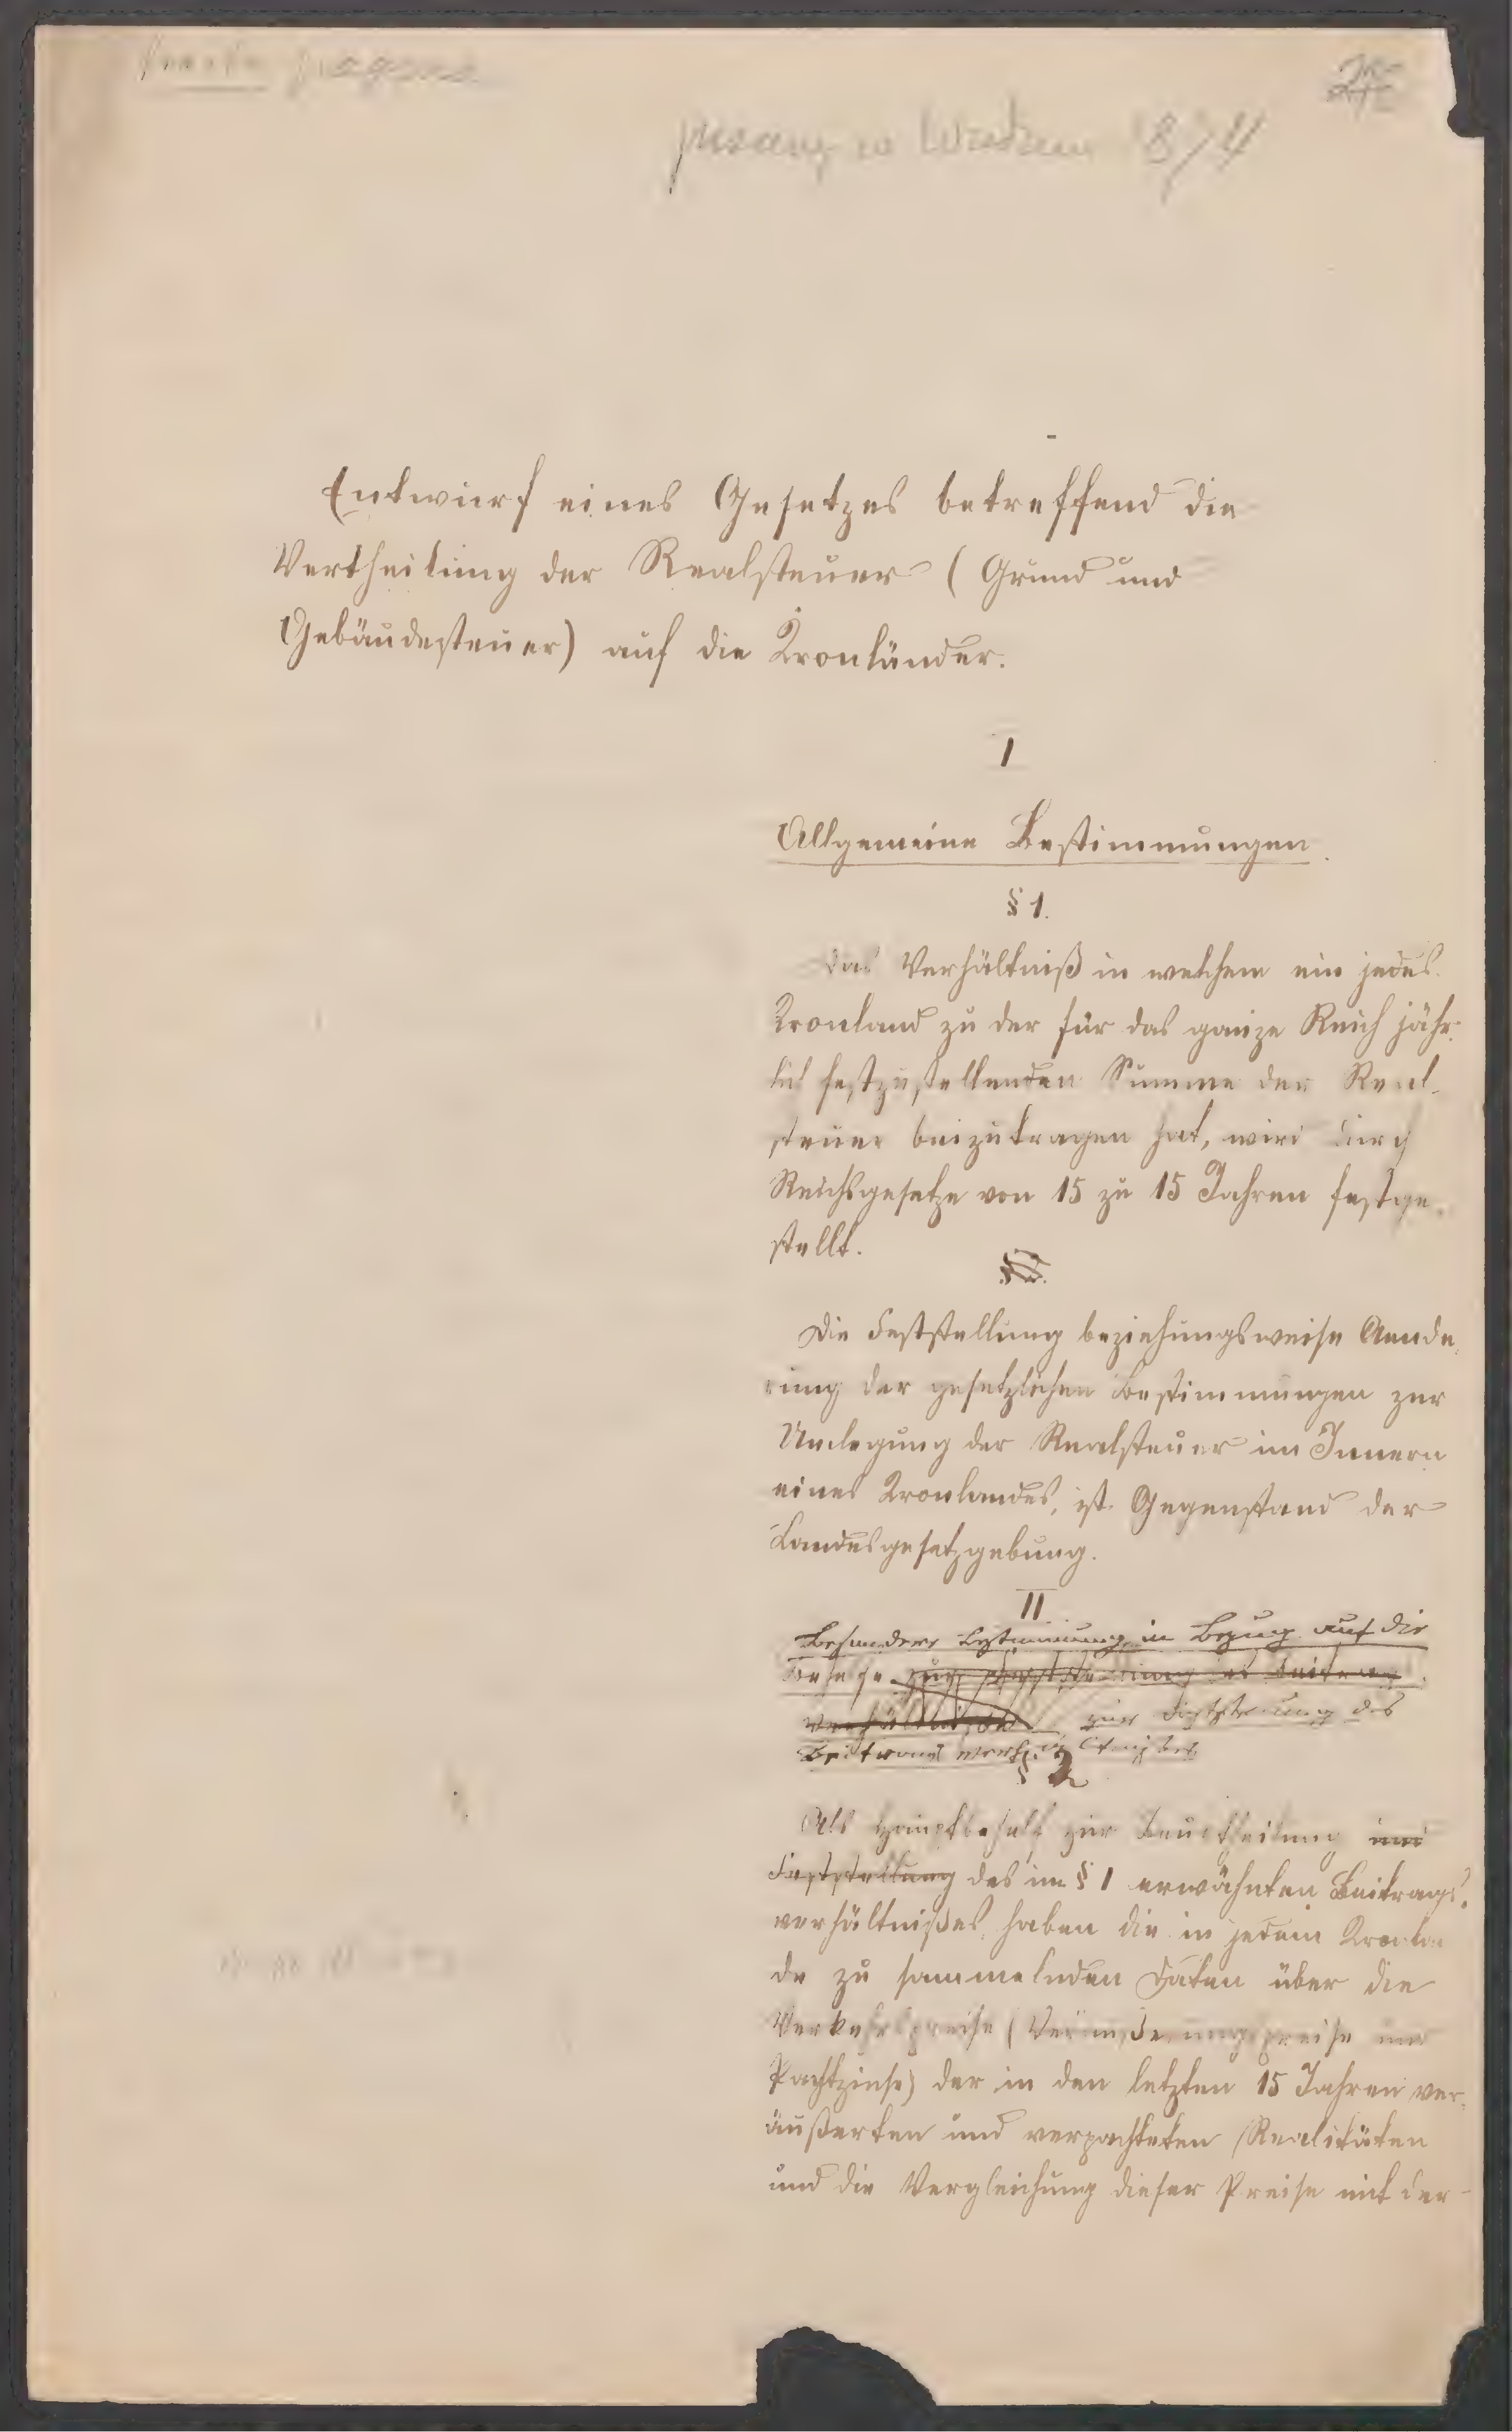 pisany w Wiedniu 1874
Entwurf eines Gesetzes betreffend die
Vertheilung der Realsteuer (Grund und
Gebäudesteuer) auf die Kronländer.
I
Allgemeine Bestimmungen.
§ 1.
Das Verhältniß in welchem ein jedes
Kronland zu der für das ganze Reich jähr-
lich festzustellenden Summe der Real-
steuer beizutragen hat, wird durch
Reichsgesetze von 15 zu 15 Jahren festge-
stellt.
Die Feststellung beziehungsweise Aende-
rung der gesetzlichen Bestimmungen zur
Umlegung der Realsteuer im Innern
eines Kronlandes, ist Gegenstand der
Landesgesetzgebung.
II
Besondere Bestimmung in Bezug auf die
Behelfe zur Feststellung des Beitrags
Verhältnisses zur Feststellung des
Beitrags
§ 2
Als Hauptbehelf zur Beurtheilung und
Feststellung des im § 1 erwähnten Beitrags-
verhältnißes haben die in jedem Kronlan
de zu sammelnden Daten über die
Verkehrspreise (Veräußerungspreise und
Pachtzinse) der in den letzten 15 Jahren ver-
äußerten und verpachteten Realitäten
und die Vergleichung dieser Preise mit der